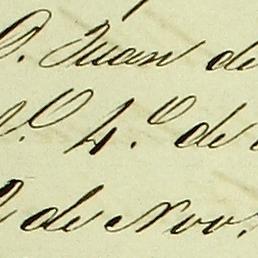 D. Juan de
4.º de
de Nov.